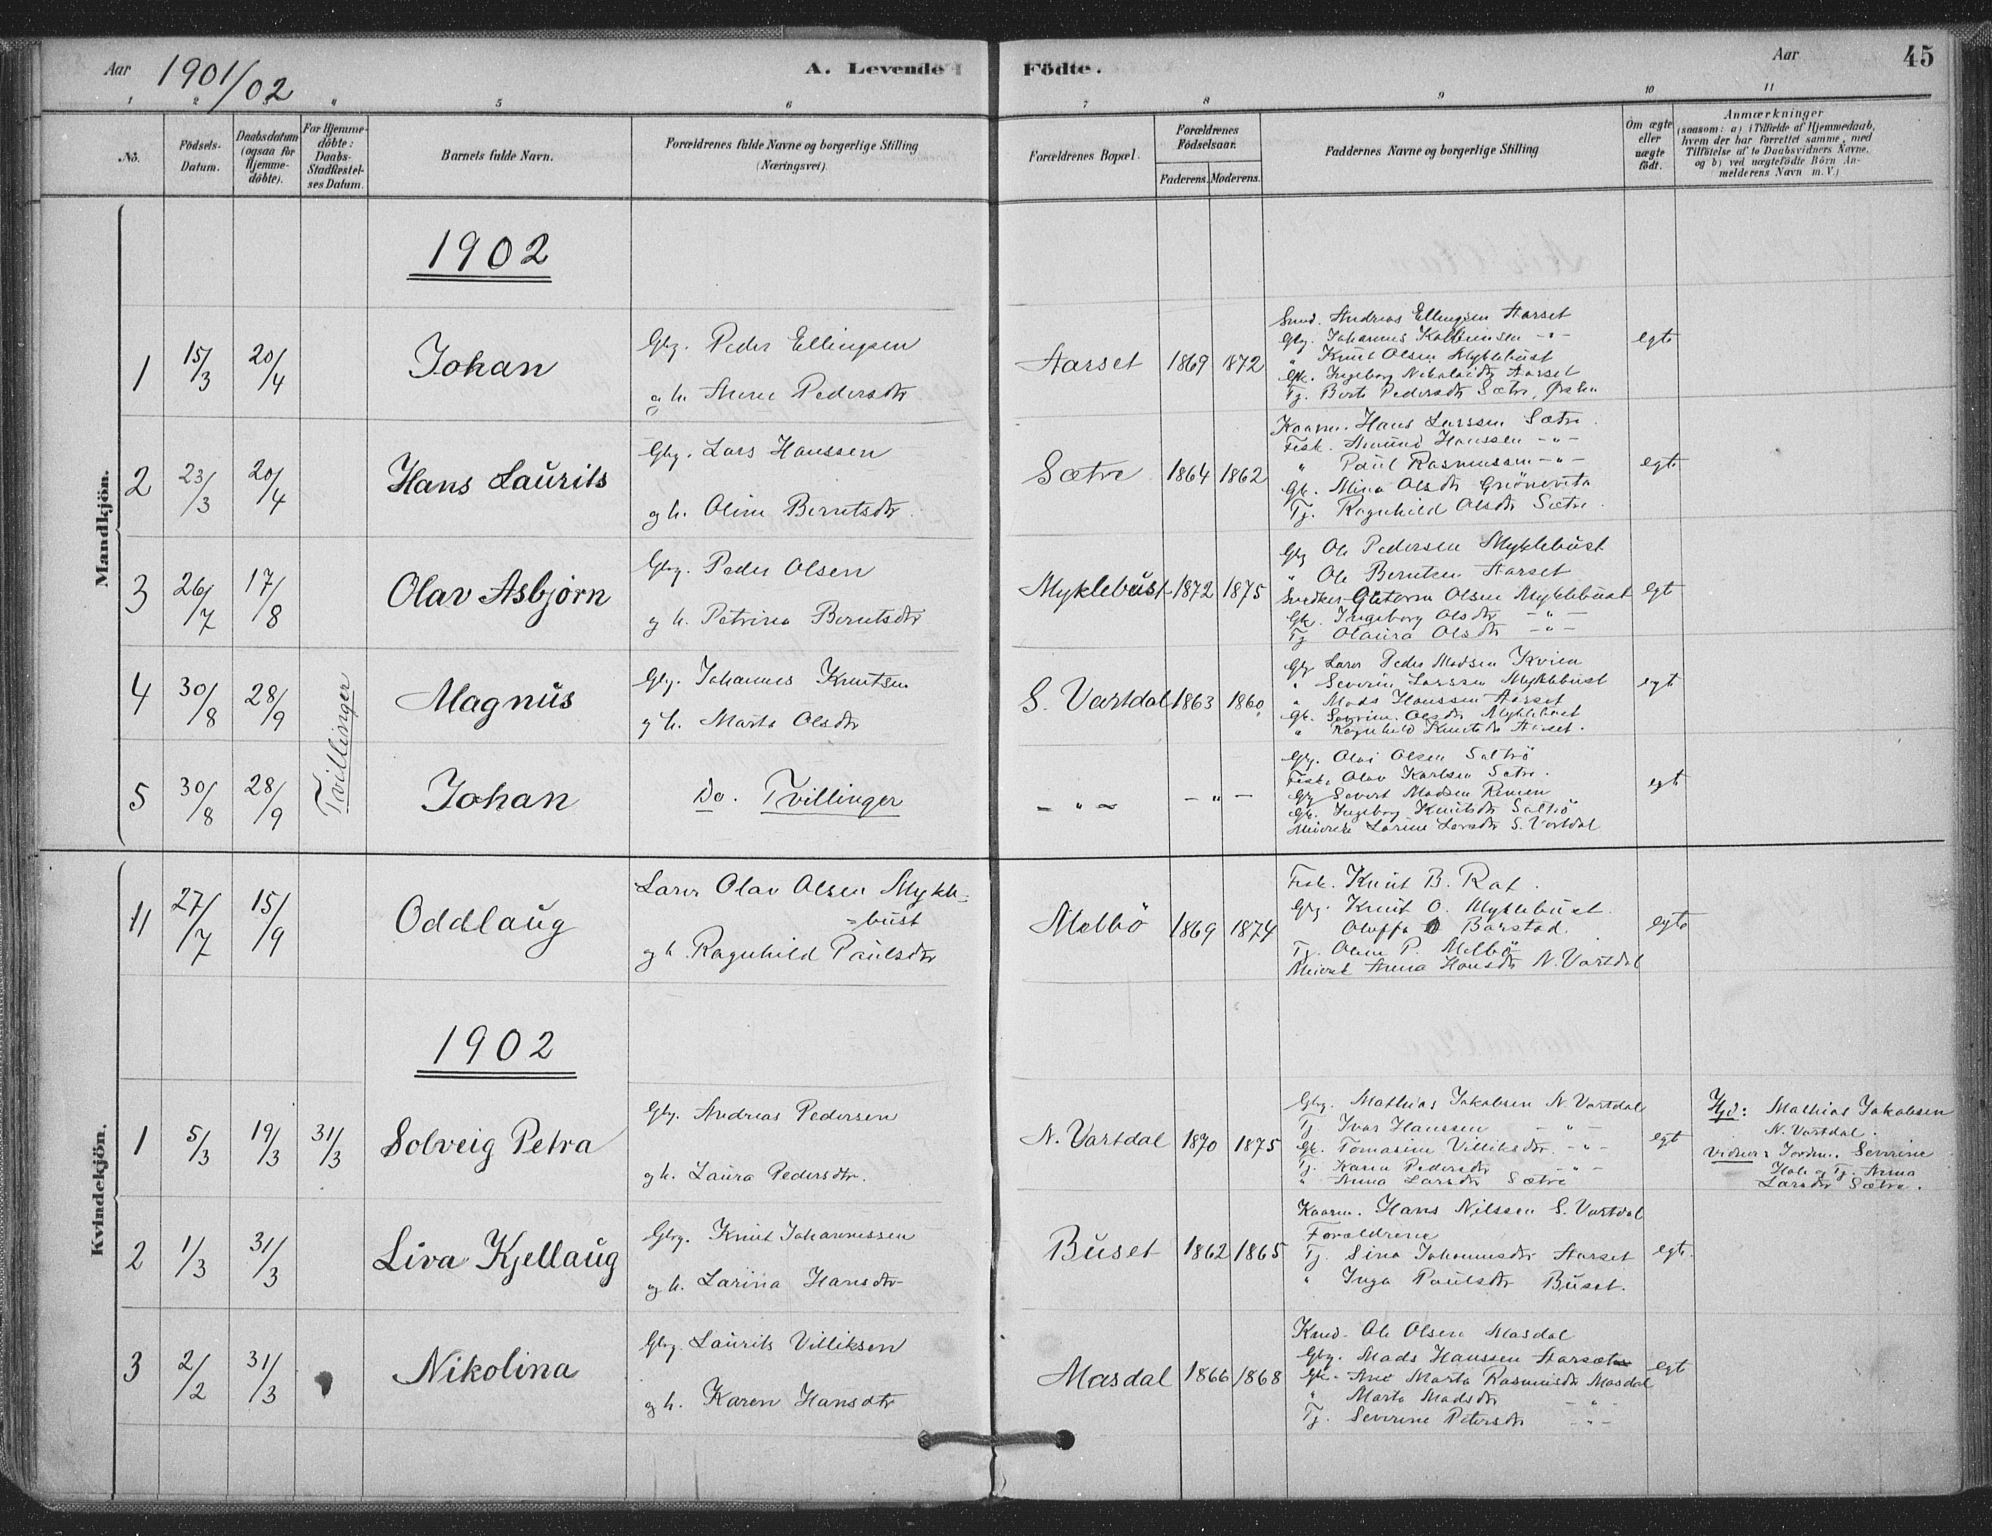 Aar 1901/02 A. Levende Födte. Aar 45
1 2 3 4 5 6 7 8 9 10 11
No.
Födsels-Datum.
Daabsdatum (ogsaa for Hjemme-döbte).
For Hjemme-döbte: Daabs-Stadfæstel-ses Datum.
Barnets fulde Navn.
Forældrenes fulde Navne og borgerlige Stilling (Næringsvei).
Forældrenes Bopæl.
Forældrenes Födselsaar.
Faderens. Moderens.
Faddernes Navne og borgerlige Stilling
Om ægte eller uægte födt.
Anmærkninger
(saasom: a) i Tilfælde af Hjemmedaab,
hvem der har forrettet samme, med
Tilföielse af to Daabsvidners Navne,
og b) ved uægtefödte Börn An-
melderens Navn m. V.)
Mandkjön.
1902
1 15/3 20/4 Johan
Gbg. Peder Ellingsen
og h. Anne Pedersdtr
Aarset 1869 1872
Smed. Andreas Ellingsen Aarset
Gbg. Johannes -"-
" Knut Olsen Myklebust
Gk. Ingeborg Nikolaidtr Aarset
Tj. Berte Pedersdtr Sætre, Ørsten
egte
2 23/3 20/4 Hans Laurits
Gbg. Lars Hanssen
og h. Oline Berntsdtr.
Sætre 1864 1862
Kaarm. Hans Larssen Sætre.
Fisk. Amund Hanssen -"-
" Paul Rasmussen -"-
Gk. Mina Olsdtr
Tj. Ragnhild Olsdtr Sætre.
egte
3 26/7 17/8 Olav Asbjørn
Gbg. Peder Olsen
og h. Petrina Berntsdtr
Myklebust 1872 1875
Gbg Ole Pedersen Myklebust
" Ole Berntsen Aarset
Snedker Guttorm Olsen Myklebust
Gk. Ingeborg Olsdtr -"-
Tj Olaura Olsdtr -"-
egt
4 30/8 28/9 Tvillinger Magnus
Gbg. Johannes Knutsen
og h. Marte Olsdtr
S. Vartdal 1863 1860
Gbg Lars Peder Madsen Kvien
" Severin Larssen Myklebust
" Mads Hanssen Aarset
Gk. Severine Olsdtr Myklebust
" Ragnhild Knutsdtr Aarset.
egt
5 30/8 28/9 Johan
Do. Tvillinger
-"- -"-
Gbg. Olai Olsen Saltrö
Fisk. Olav Karlsen Sætre.
Gbg Sivert Madsen
Gk. Ingeborg Knutsdtr Saltrö
Meierske Larine Larsdtr S. Vartdal
egt
Kvindekjön.
11 27/7 15/9 Oddlaug
Lærer Olav Olsen Mykle-
=bust
og h. Ragnhild Paulsdtr
Melbö 1869 1874
Fisk. Knut B. Rat.
Gbg. Knut O. Myklebust.
Oluffa Barstad.
Tj. Olene P. Melbö
Meiersk Anna Hansdtr N. Vartdal
egte
1902
1 5/3 19/3 31/3 Solveig Petra
Gbg. Andreas Pedersen
og h. Laura Pedersdtr.
N. Vartdal 1870 1875
Gbg. Mathias Jakobsen N. Vartdal
Tj. Ivar Hanssen -"-
Gk. Tomasine Villiksdtr. -"-
Tj. Karen Pedersdtr -"-
" Anna Larsdtr Sætre
egt
Hjd: Mathias Jakobsen
N. Vartdal.
Vidner: Jordm. Severine
Hole og Tj. Anna
Larsdtr Sætre.
2 1/3 31/3 Liva Kjellaug
Gbg. Knut Johannessen
og h. Larina Hansdtr
Buset 1862 1865
Kaarm. Hans Nilssen S. Vartdal
Forældrene
Tj. Sina Johannesdtr Aarset
" Inga Paulsdtr Buset.
egt.
3 2/2 31/3 Nikolina
Gbg. Laurits Villiksen
og h. Karen Hansdtr
Masdal 1866 1868
Ole Olsen Masdal
Gbg. Mads Hanssen Aarset
Gk. Ane Marta Rasmusdtr Masdal
" Marte Madsdtr -"-
Tj. Severine Petersdtr -"-
egt